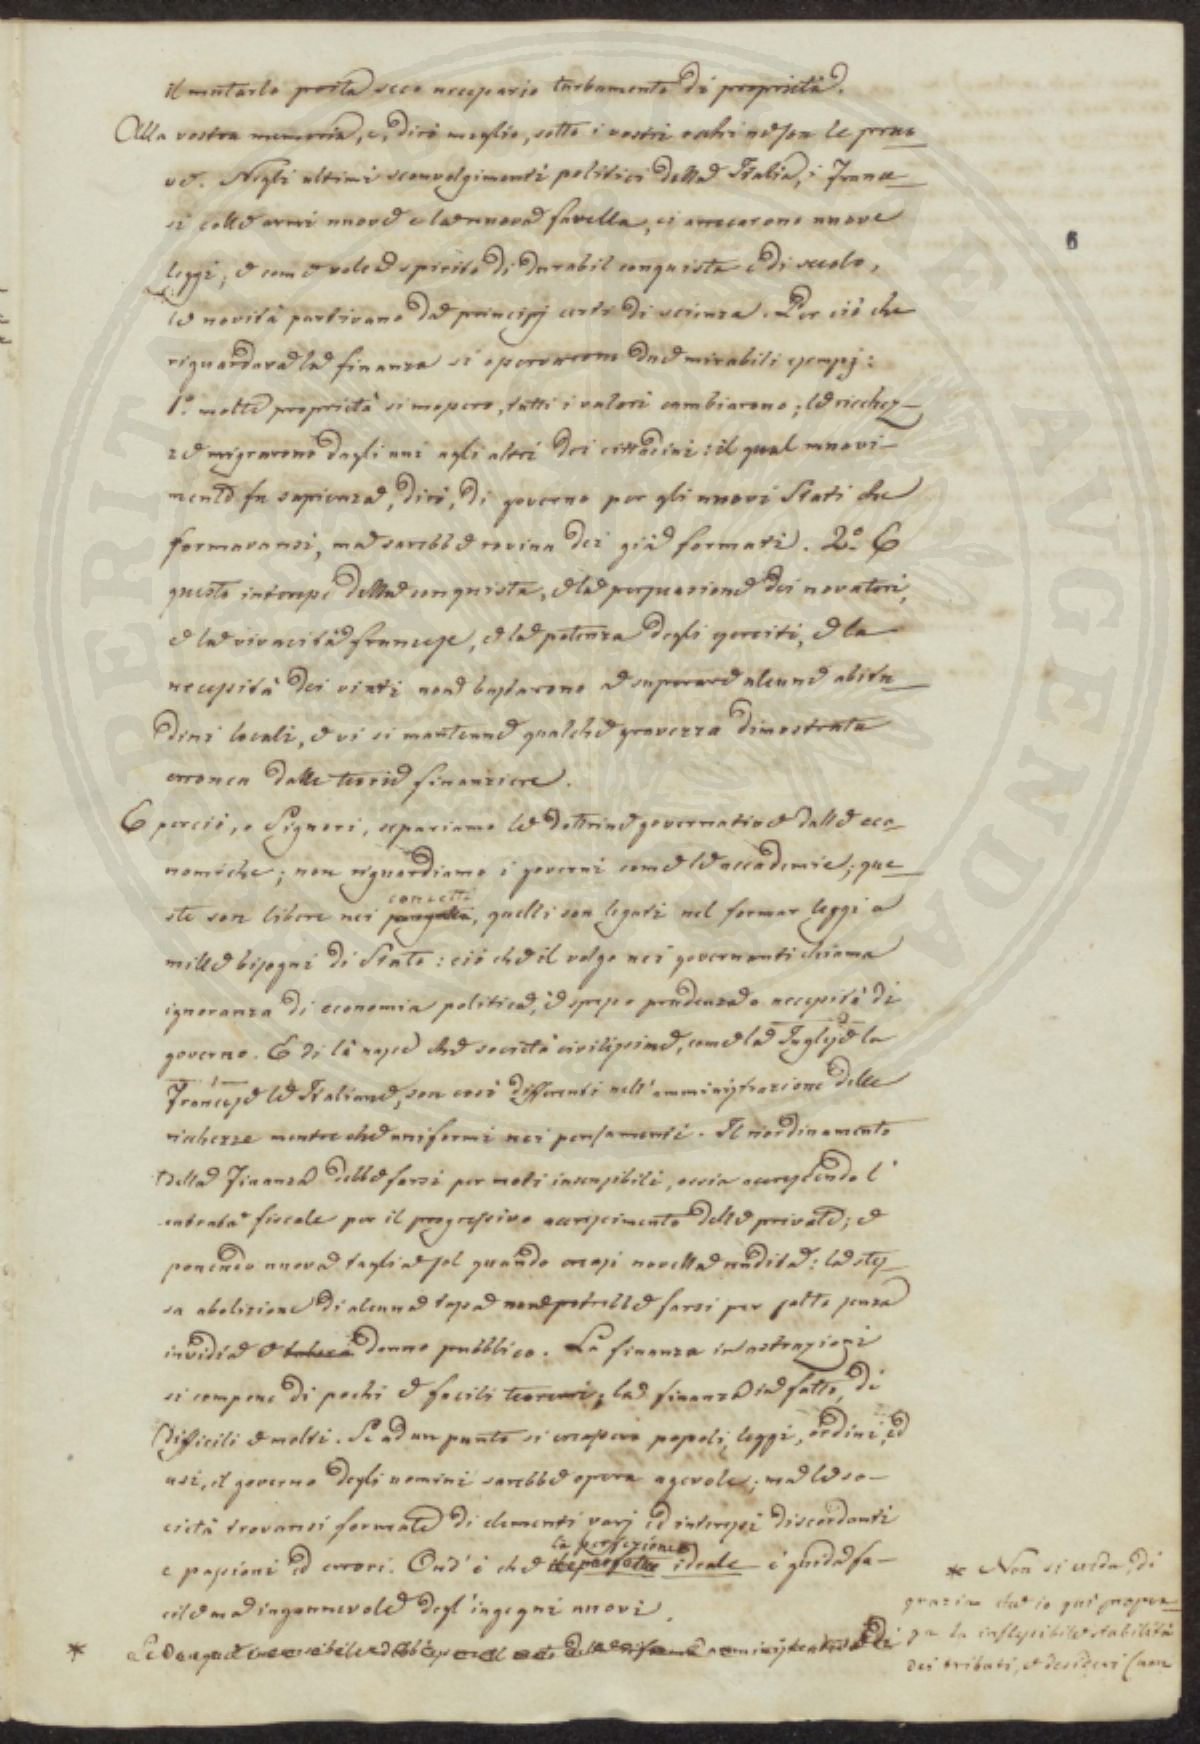 6
il mutarlo porta seco necessario turbamento di proprietà.
Alla vostra memoria, e, dirò meglio, sotto i vostri occhi ne son le pruo-
ve. Negli ultimi sconvolgimenti politici della Italia, i France-
si colle armi nuove e la nuova favella, ci arrecarono nuove
leggi; e come vole spirito di durabil conquista e di secolo,
le novità partivano da principj certi di scienza. Per ciò che
riguardava la finanza si operarono due mirabili esempj:
1.º molte proprietà si mossero, tutti i valori cambiarono; le ricchez-
ze migrarono dagli uni agli altri dei cittadini: il qual muovi-
mento fu sapienza, dirò, di governo per gli nuovi Stati che
formavansi, ma sarebbe rovina dei già formati. 2.º E
questo interesse della conquista, e la persuasione dei novatori,
e la vivacità francese, e la potenza degli eserciti, e la
necessità dei vinti non bastarono a superare alcune abitu-
dini locali, e vi si mantenne qualche gravezza dimostrata
erronea dalle teorie finanziere.
E perciò, o Signori, separiamo le dottrine governative dalle eco-
nomiche; non riguardiamo i governi come le accademie; que-
concetti
ste son libere nei progetti, quelli son legati nel formar leggi a
mille bisogni di Stato: ciò che il volgo nei governanti chiama
ignoranza di economia politica, è spesso prudenza o necessità di
governo. E di là nasce che società civilissime, come la Inglese la
Francese le Italiane, son così differenti nell'amministrazione delle
ricchezze mentre che uniformi nei pensamenti. Il riordinamento
della Finanza debbe farsi per moti insensibili, ossia accrescendo l'
entrata fiscale per il progressivo accrescimento delle private; e
ponendo nuova taglia sol quando creasi novella rendita: la stes-
sa abolizione di alcuna tassa non potrebbe farsi per salto senza
invidia e danno pubblico. La finanza in astrazioni
si compone di pochi e facili teoremi; la finanza in fatto, di
difficili e molti. Se ad un punto si creassero popoli, leggi, ordini, ed
usi, il governo degli uomini sarebbe opera agevole; ma le so-
cietà trovansi formate di elementi varj ed interessi discordanti
la perfezione
e passioni ed errori. Ond'è che il perfetto ideale è guida fa-
cile ma ingannevole degl'ingegni nuovi.
*
* Non si creda, di
grazia che io qui propon-
ga la inflessibile stabilità
dei tributi, e desideri (non